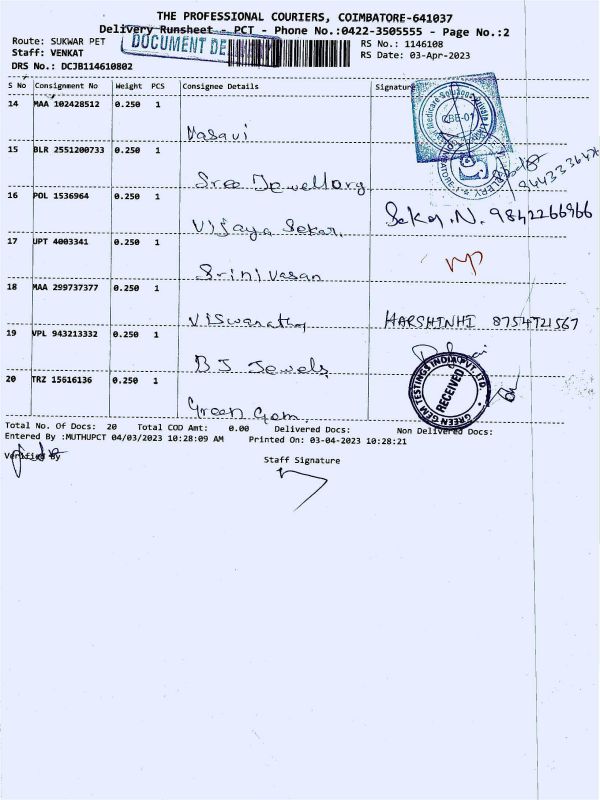 THE PROFESSIONAL COURIERS, COIMBATORE-641037
Delivery Runsheet - PCT - Phone No.:0422-3505555 - Page No.:2
Route: SUKWAR PET
DOCUMENT DE
RS No.: 1146108
Staff: VENKAT
RS Date: 03-Apr-2023
DRS No.: DCJB114610802
S No Consignment No Weight PCS Consignee Details Signature
14 MAA 102428512 0.250 1
Vasavi
CBE-01
15 BLR 2551200733 0.250 1
Sree Jewellery
16 POL 1536964 0.250 1
Vijaya Sekar.
Sekar.N. 9842266966
17 UPT 4003341 0.250 1
Srinivasan
18 MAA 299737377 0.250 1
Viswanathan
HARSHINHI 8754721567
19 VPL 943213332 0.250 1
B J Jewels
20 TRZ 15616136 0.250 1
Green Gem
GREEN GEM TESTINGS INDIA PVT. LTD.
RECEIVED
Total No. Of Docs: 20 Total COD Amt: 0.00 Delivered Docs: Non Delivered Docs:
Entered By :MUTHUPCT 04/03/2023 10:28:09 AM Printed On: 03-04-2023 10:28:21
Verified By
Staff Signature